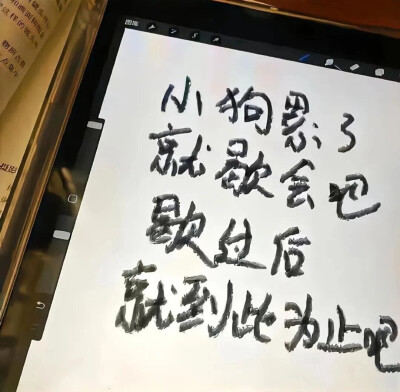 图库
小狗累了
就歇会吧
歇过后
就到此为止吧